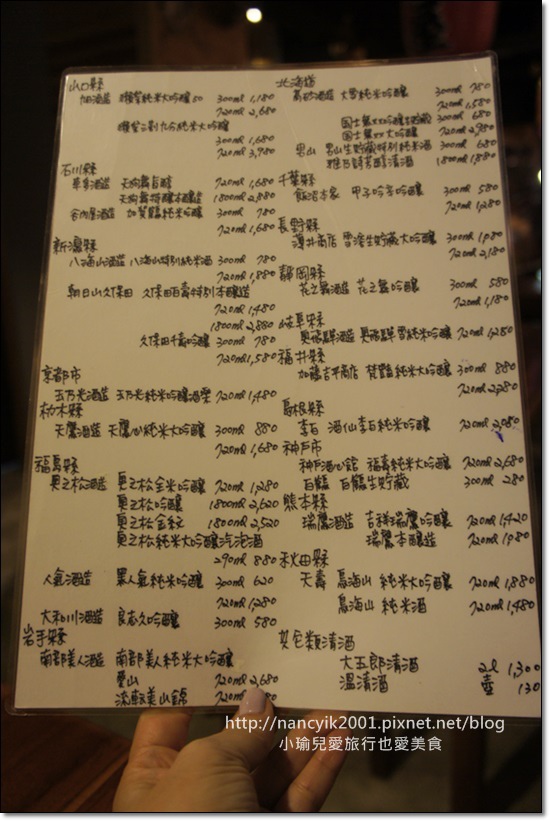 山口縣
旭酒造 獺祭純米大吟釀50 300ml 1,180
720ml 2,680
獺祭三割九分純米大吟釀
300ml 1,680
720ml 3,980
石川縣
車多酒造 天狗舞旨醇 720ml 1,680
天狗舞特釀本釀造 1800ml 2,880
谷內屋酒造 加賀鶴純米吟釀 300ml 780
720ml 1,680
新瀉縣
八海山酒造 八海山特別純米酒 300ml 780
720ml 1,880
朝日山久保田 久保田百壽特別本釀造
720ml 1,480
1800ml 2,880
久保田千壽吟釀 300ml 780
720ml 1,580
京都市
玉乃光酒造 玉乃光純米吟釀酒魂 720ml 1,480
枥木縣
天鷹酒造 天鷹心純米大吟釀 300ml 880
720ml 1,680
福島縣
奧之松酒造 奧之松全米吟釀 720ml 1,280
奧之松吟釀 1800ml 2,620
奧之松金紋 1800ml 2,520
奧之松純米大吟釀汽泡酒
290ml 880
人氣酒造 黑人氣純米吟釀 300ml 620
720ml 1,280
大和川酒造 良志久吟釀 300ml 580
岩手縣
南部美人酒造 南部美人純米大吟釀
愛山 720ml 2,680
美山錦 720ml
北海道
高砂酒造 大雪純米吟釀 300ml 780
720ml 1,580
國士無双大吟釀生貯藏 300ml 680
國士無双大吟釀 720ml 2,980
男山 男山生貯藏特別純米酒 300ml 680
清酒 1800ml 1,880
千葉縣
飯沼本家 甲子吟冬吟釀 300ml 580
720ml 1,280
長野縣
薄井商店 雪溪生貯藏大吟釀 300ml 1,080
720ml 2,180
靜岡縣
花之舞酒造 花之舞吟釀 300ml 580
720ml 1,180
岐阜縣
奧飛驒酒造 奧飛驒雪純米吟釀 720ml 1,280
福井縣
加藤吉平商店 梵艷純米大吟釀
720ml 2,280
島根縣
李白 酒仙李白純米吟釀 720ml 2,080
神戶市
神戶酒心館 福壽純米大吟釀 720ml 2,680
白鶴 白鶴生貯藏 300ml 280
熊本縣
瑞鷹酒造 吉祥瑞鷹吟釀 720ml 1,420
瑞鷹本釀造 720ml 1,080
秋田縣
天壽 鳥海山 純米大吟釀 720ml 1,880
鳥海山 純米酒 720ml 1,480
其它類清酒
大五郎清酒 2L 1,300
溫清酒 壺 130
http://nancyik2001.pixnet.net/blog
小瑜兒愛旅行也愛美食